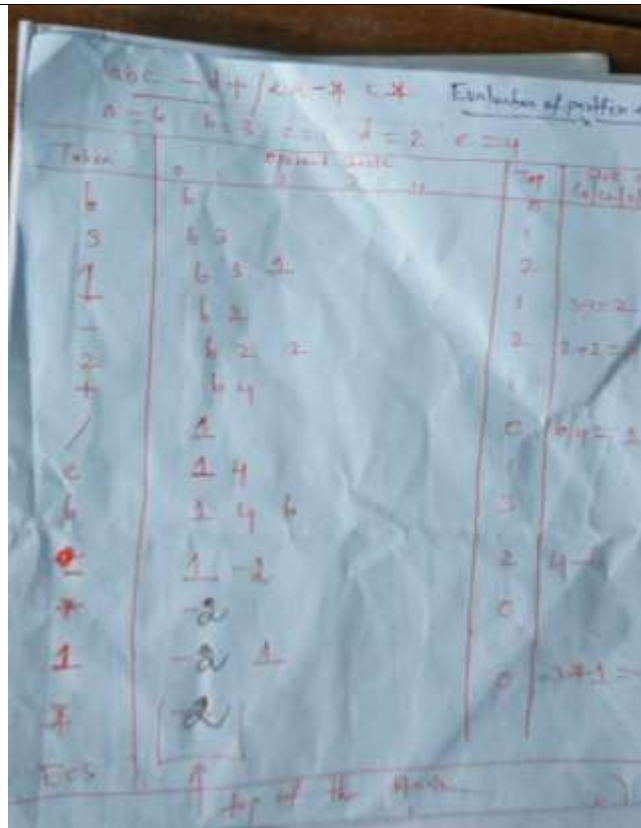 abc - d + / ea - * c *
Evaluation of postfix
a = 6 b = 3 c = 1 d = 2 e = 4
Token operand stack Top
6 6 0
3 6 3 1
1 6 3 1 2
- 6 2 1 3-1=2
2 6 2 2 2 2+2=4
+ 6 4 1
/ 1 0 6/4=1
e 1 4 1
6 1 4 6 3
- 1 -2 2 4-6
* -2 0
1 -2 1
* -2 0 -2*1=
EOS
top of the stack